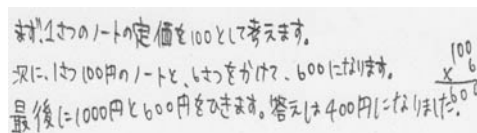 まず、1さつのノートの定価を100として考えます。
次に、1さつ100円のノートと、6さつをかけて、600になります。
最後に1000円と600円をひきます。答えは400円になりました。
100
× 6
600